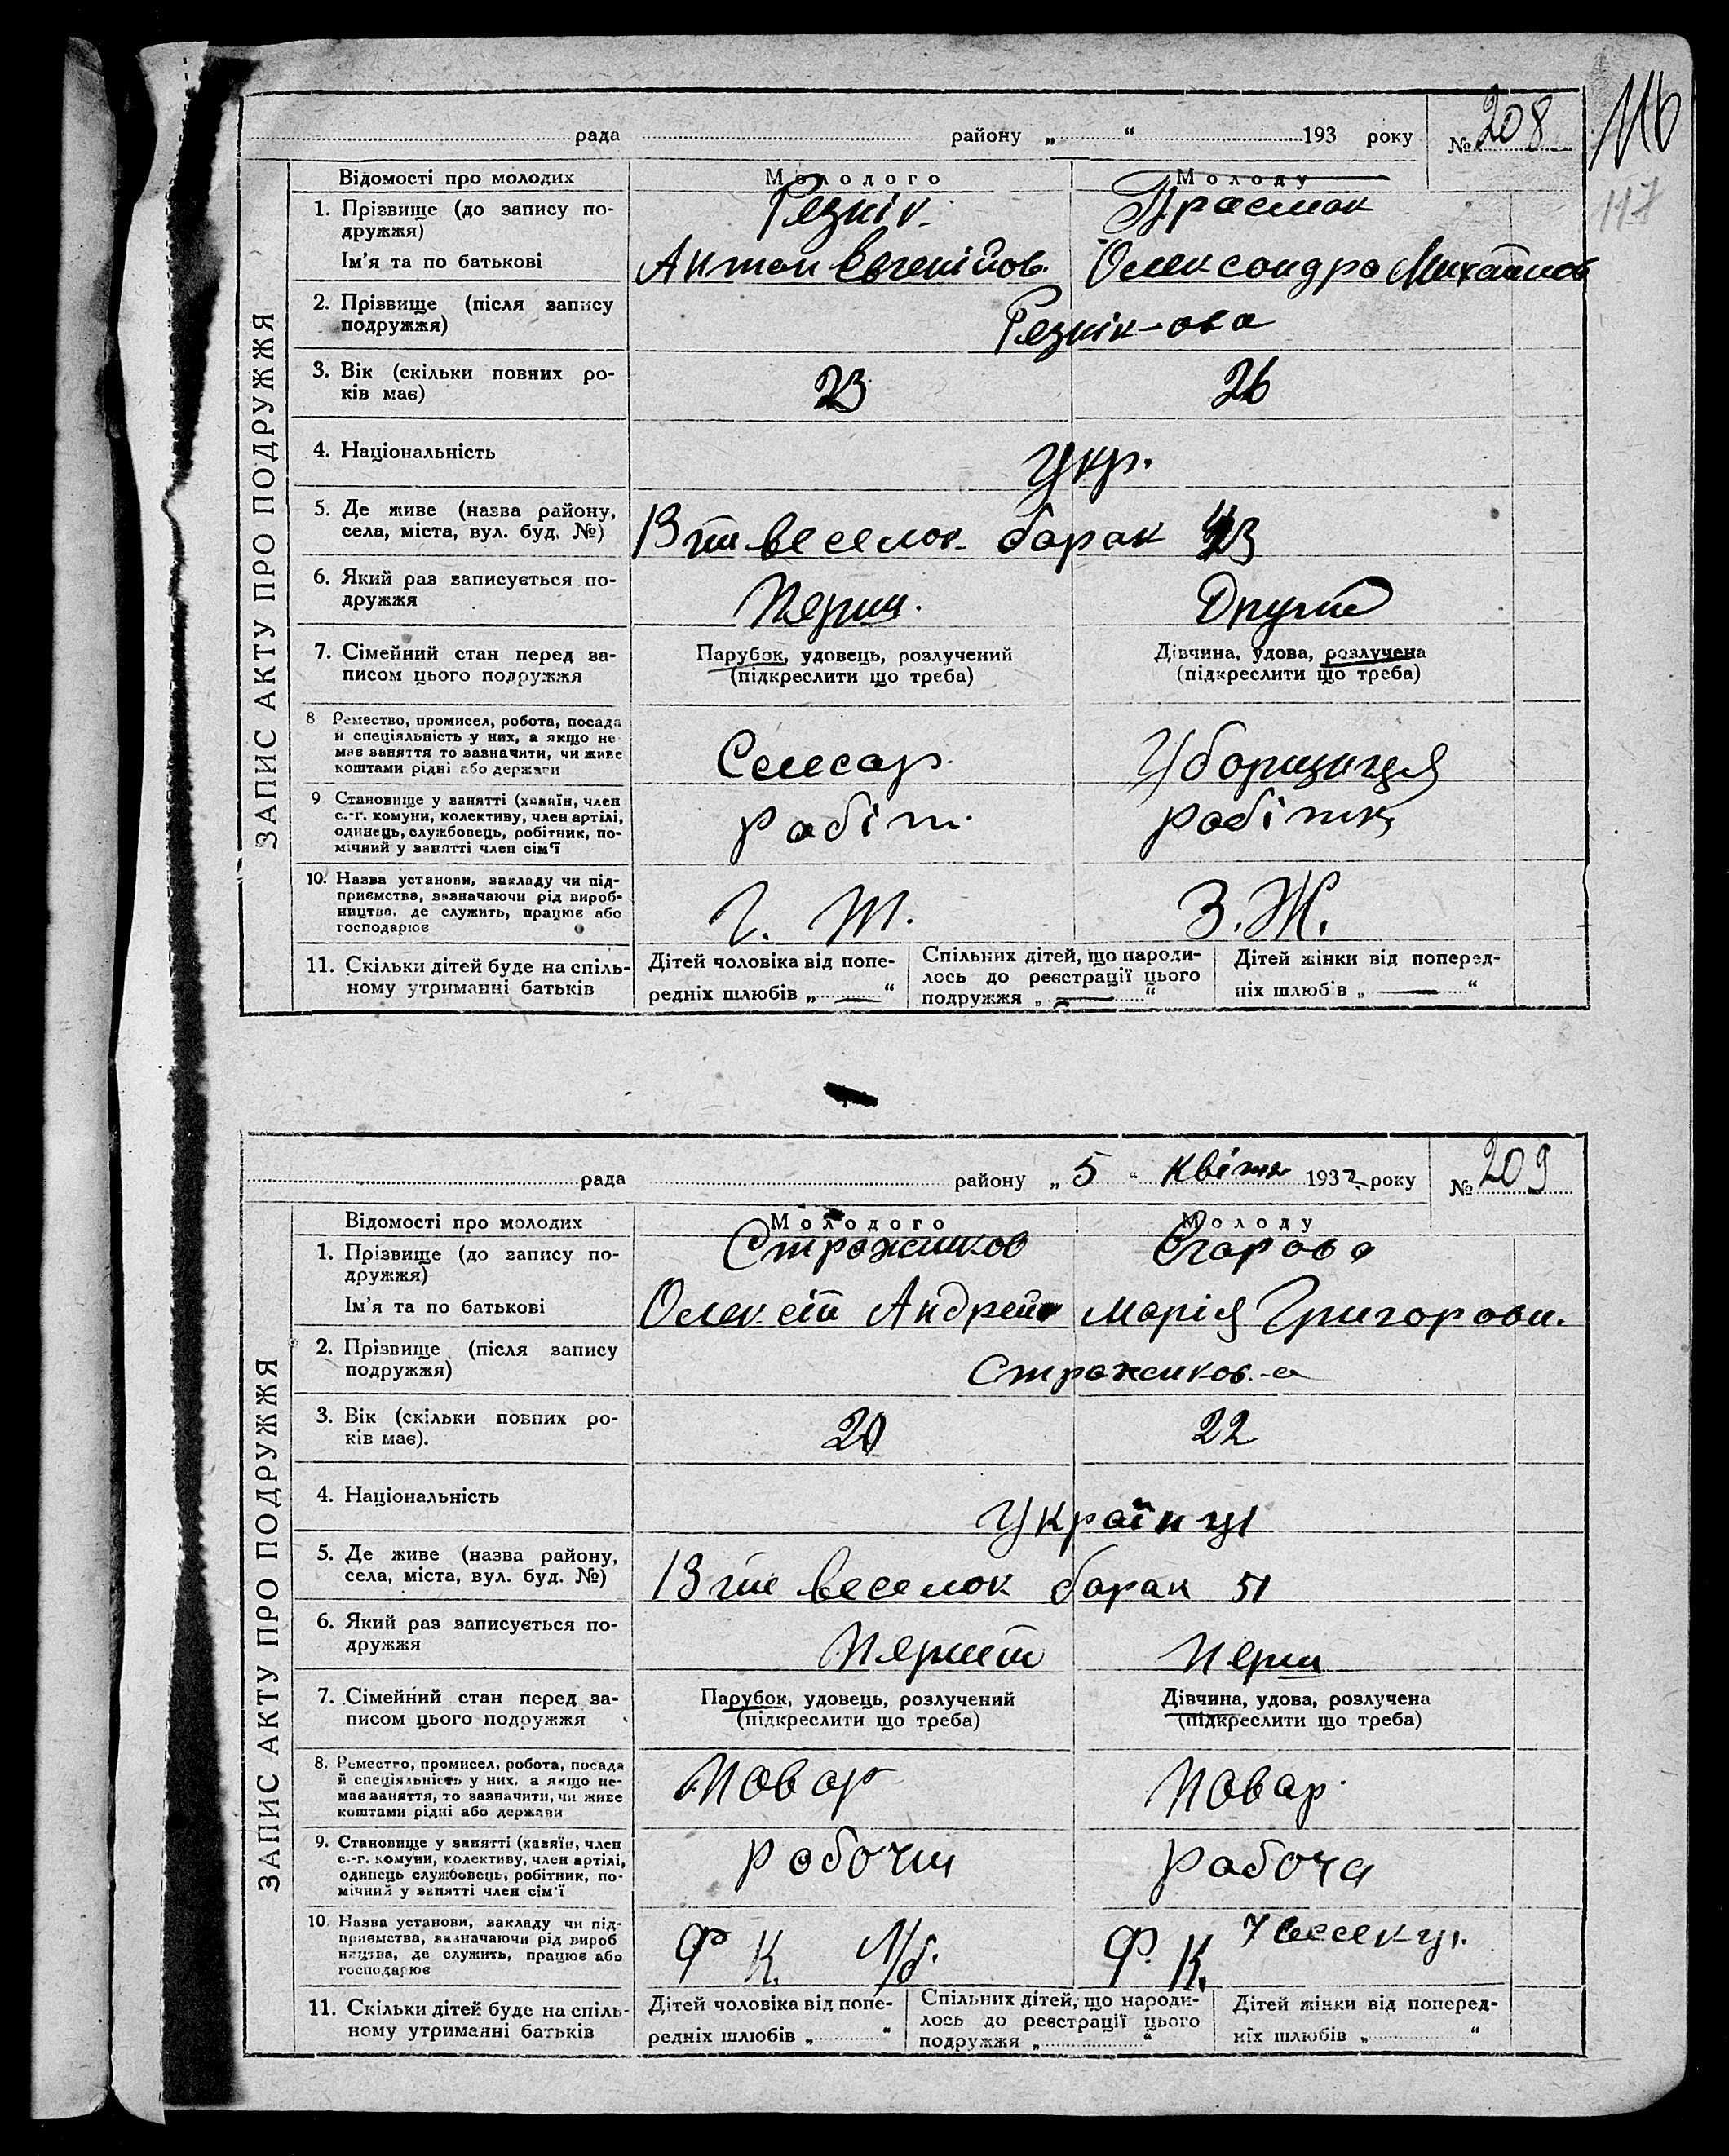 116
117
рада району „ “ 193 року № 208
ЗАПИС АКТУ ПРО ПОДРУЖЖЯ
Відомості про молодих Молодого Молоду
1. Прізвище (до запису по-
дружжя) Резнік
Ім'я та по батькові Антон Евгенійов. Олександра Михайлов
2. Прізвище (після запису
подружжя) Резнік-ова
3. Вік (скільки повних ро-
ків має) 23 26
4. Національність Укр.
5. Де живе (назва району,
села, міста, вул. буд. №) веселок барак
6. Який раз записується по-
дружжя Перш. Другий
7. Сімейний стан перед за-
писом цього подружжя
Парубок, удовець, розлучений
(підкреслити що треба)
Дівчина, удова, розлучена
(підкреслити що треба)
8 Ремество, промисел, робота, посада
й спеціяльність у них, а якщо не
має заняття то зазначити, чи живе
коштами рідні або держави
Слесар. Уборщиця
9 Становище у занятті (хазяїн, член
с.-г. комуни, колективу, член артілі,
одинець, службовець, робітник, по-
мічний у занятті член сім'ї
робіт. робітн
10. Назва установи, закладу чи під-
приємства, зазначаючи рід вироб-
ництва, де служить, працює або
господарює
З. Ж.
11. Скільки дітей буде на спіль-
ному утриманні батьків
Дітей чоловіка від попе-
редніх шлюбів „ — “
Спільних дітей, що народи-
лось до реєстрації цього
подружжя „ — “
Дітей жінки від поперед-
ніх шлюбів „ — “
рада району „ 5 “ квітня 1932 року № 209
ЗАПИС АКТУ ПРО ПОДРУЖЖЯ
Відомості про молодих Молодого Молоду
1. Прізвище (до запису по-
дружжя) Стражников Егорова
Ім'я та по батькові Олексій Андрей Марія Григоровн.
2. Прізвище (після запису
подружжя) Стражников-а
3. Вік (скільки повних ро-
ків має). 20 22
4. Національність Українці
5. Де живе (назва району,
села, міста, вул. буд. №) веселок барак 51
6. Який раз записується по-
дружжя Перший Перш
7. Сімейний стан перед за-
писом цього подружжя
Парубок, удовець, розлучений
(підкреслити що треба)
Дівчина, удова, розлучена
(підкреслити що треба)
8. Ремество, промисел, робота, посада
й спеціяльність у них, а якщо не-
має заняття, то зазначити, чи живе
коштами рідні або держави
Повар Повар
9. Становище у занятті (хазяїн, член
с.-г. комуни, колективу, член артілі,
одинець службовець, робітник, по-
мічний у занятті член сім'ї
робочи рабоча
10. Назва установи, закладу чи під-
приємства, зазначаючи рід вироб
ництва, де служить, працює або
господарює
Ф К. Ф. К.
11. Скільки дітей буде на спіль-
ному утриманні батьків
Дітей чоловіка від попе-
редніх шлюбів „ “
Спільних дітей, що народи-
лось до реєстрації цього
подружжя „ “
Дітей жінки від поперед-
ніх шлюбів „ “